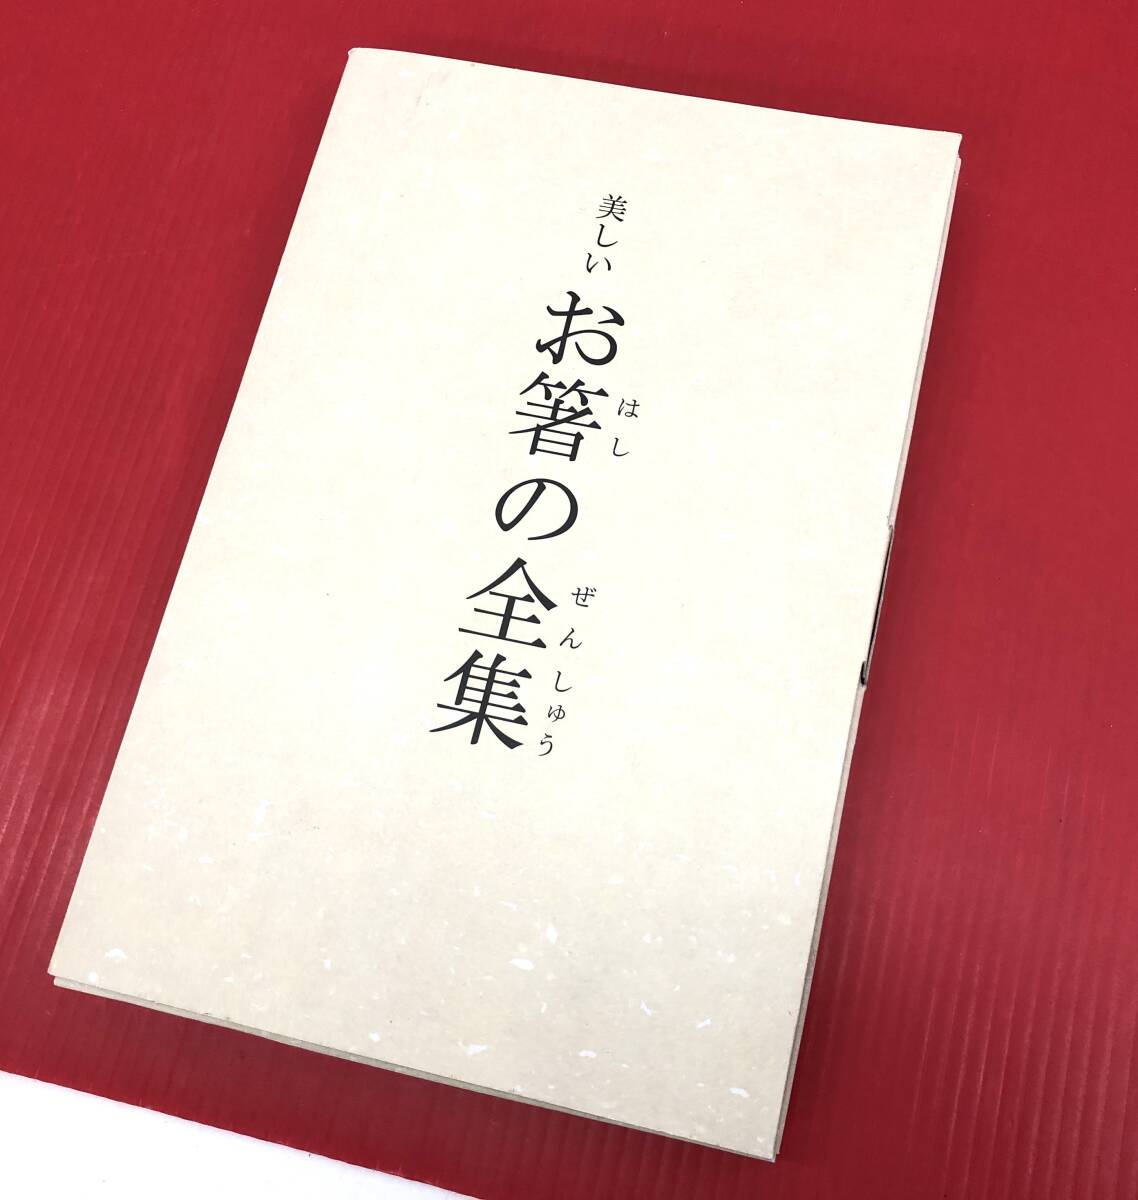 美しい
お箸の全集
はし
ぜんしゅう